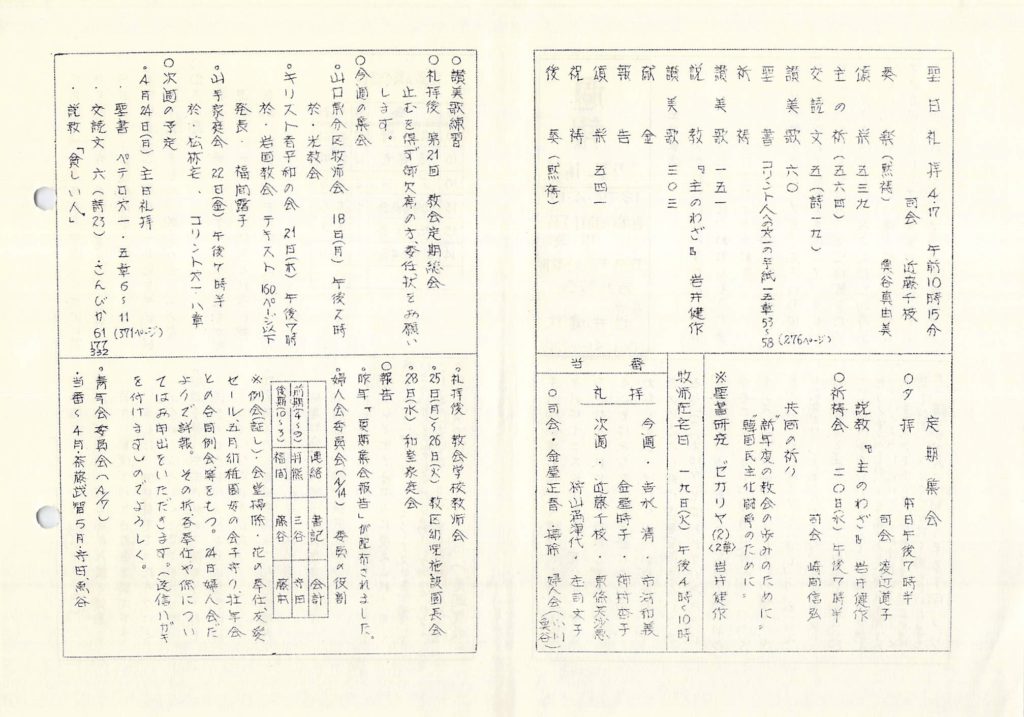 聖日礼拝 4.17 午前10時15分
司会 近藤千枝
奏楽(黙祷) 粟谷真由美
頌栄 五三九
主の祈(五六四)
交読文 五(詩一九)
讃美歌 六〇
聖書 コリント人への第一の手紙一五章53〜58 (276ページ)
祈祷
讃美歌 一五一
説教 『主のわざ』 岩井健作
讃美歌 三〇三
献金
報告
頌栄 五四一
祝祷
後奏(黙祷)
定期集会
○夕拝 本日午後7時半
司会 渡辺道子
説教『主のわざ』岩井健作
○祈祷会 二〇日(水)午後7時半
司会 崎岡信弘
共同の祈り
“新年度の教会の歩みのために”
“韓国民主化闘争のために”
※聖書研究 ゼカリヤ(2) 〈2章〉 岩井健作
牧師在宅日 一九日(火) 午後4時〜10時
当番
礼拝
今週・吉水清・市河和義
金屋時子・
次週・近藤千枝・
○司会・金屋正吾・掃除 婦人会(小川 粟谷)
○讃美歌練習
○礼拝後 第21回 教会定期総会
止むを得ず御欠席の方、委任状をお願い
します。
○今週の集会
◦山口県分区牧師会 18日(月) 午後2時
於・光教会
◦キリスト者平和の会 21日(木) 午後7時
於・岩国教会 テキスト160ページ以下
発表・福間露子
◦山手家庭会 22日(金) 午後7時半
於・松林宅、コリント第一八章
○次週の予定
・4月24日(月) 主日礼拝
・聖書 ペテロ第一・五章6〜11 (371ページ)
・交読文 六(詩23)・さんびか 61 177 332
・説教 「貧しい人」
・礼拝後 教会学校教師会
・25日(月)〜26日(火) 教区幼児施設園長会
・28日(水) 和室家庭会
○報告
・昨年『夏期集会報告』が配布されました。
・婦人会委員会(4/14) 委員の役割
連絡 書記 会計
前期(4〜9) 羽熊 三谷 寺田
後期(10〜3) 福間 藤谷 藤本
※例会(証し)・会堂掃除・花の奉仕友愛
セール五月幼稚園母の会子守り、壮年会
との合同例会等をもつ。24日婦人会だ
よりで詳報。その折奉仕や係につい
てはお申出をいただきます。(返信ハガキ
を付けます)のでよろしく。
・青年会委員会(4/7)
・当番〈4月・斎藤武智 5月・寺田・魚谷